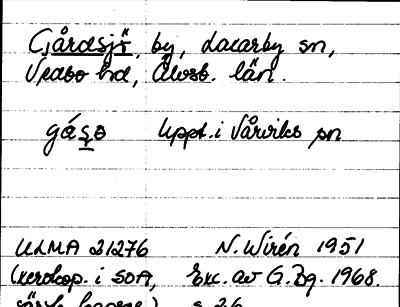 Gårdsjö, by, Lacarby sn,
Vedbo hd, Älvsb. län.
gá̱ṣo Uppt. i Vårviks sn
ULMA 21276 N. Wirén 1951
(xerokop. i SOA, Exc. av G. Bg. 1968.
s. 26